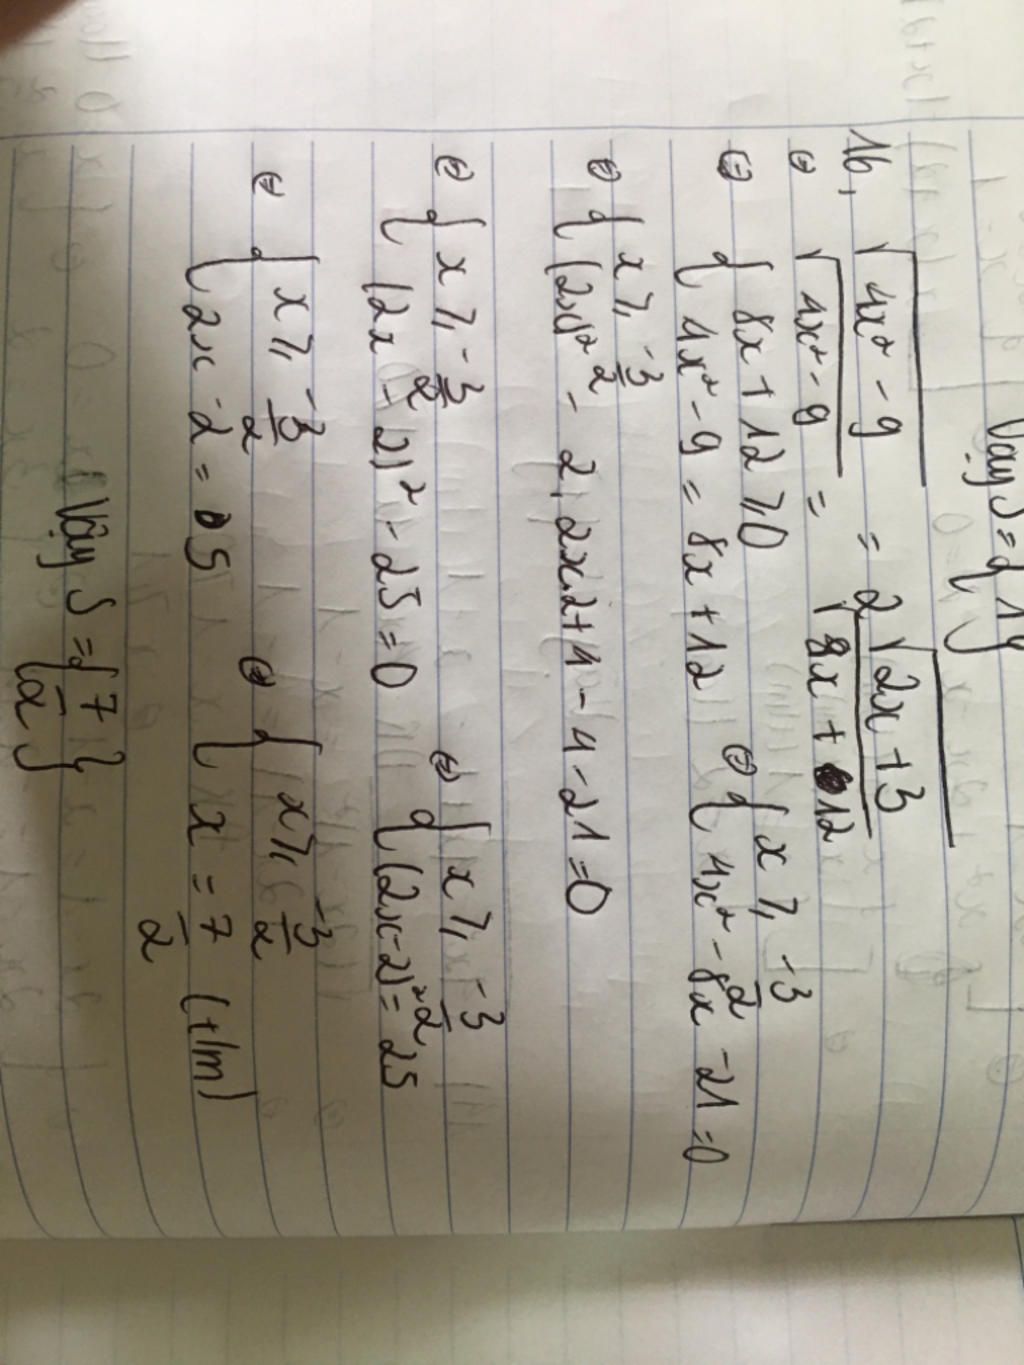 Vậy S = { 1 }
16, √(4x² - 9) = 2√(2x + 3)
⇔ √(4x² - 9) = √(8x + 12)
⇔ { 8x + 12 ⩾ 0 ⇔ { x ⩾ -3/2
{ 4x² - 9 = 8x + 12 { 4x² - 8x - 21 = 0
⇔ { x ⩾ -3/2
{ (2x)² - 2.2x.2 + 4 - 4 - 21 = 0
⇔ { x ⩾ -3/2 ⇔ { x ⩾ -3/2
{ (2x - 2)² - 25 = 0 { (2x - 2)² = 25
⇔ { x ⩾ -3/2 ⇔ { x ⩾ -3/2
{ 2x - 2 = 5 { x = 7/2 (tm)
Vậy S = { 7/2 }